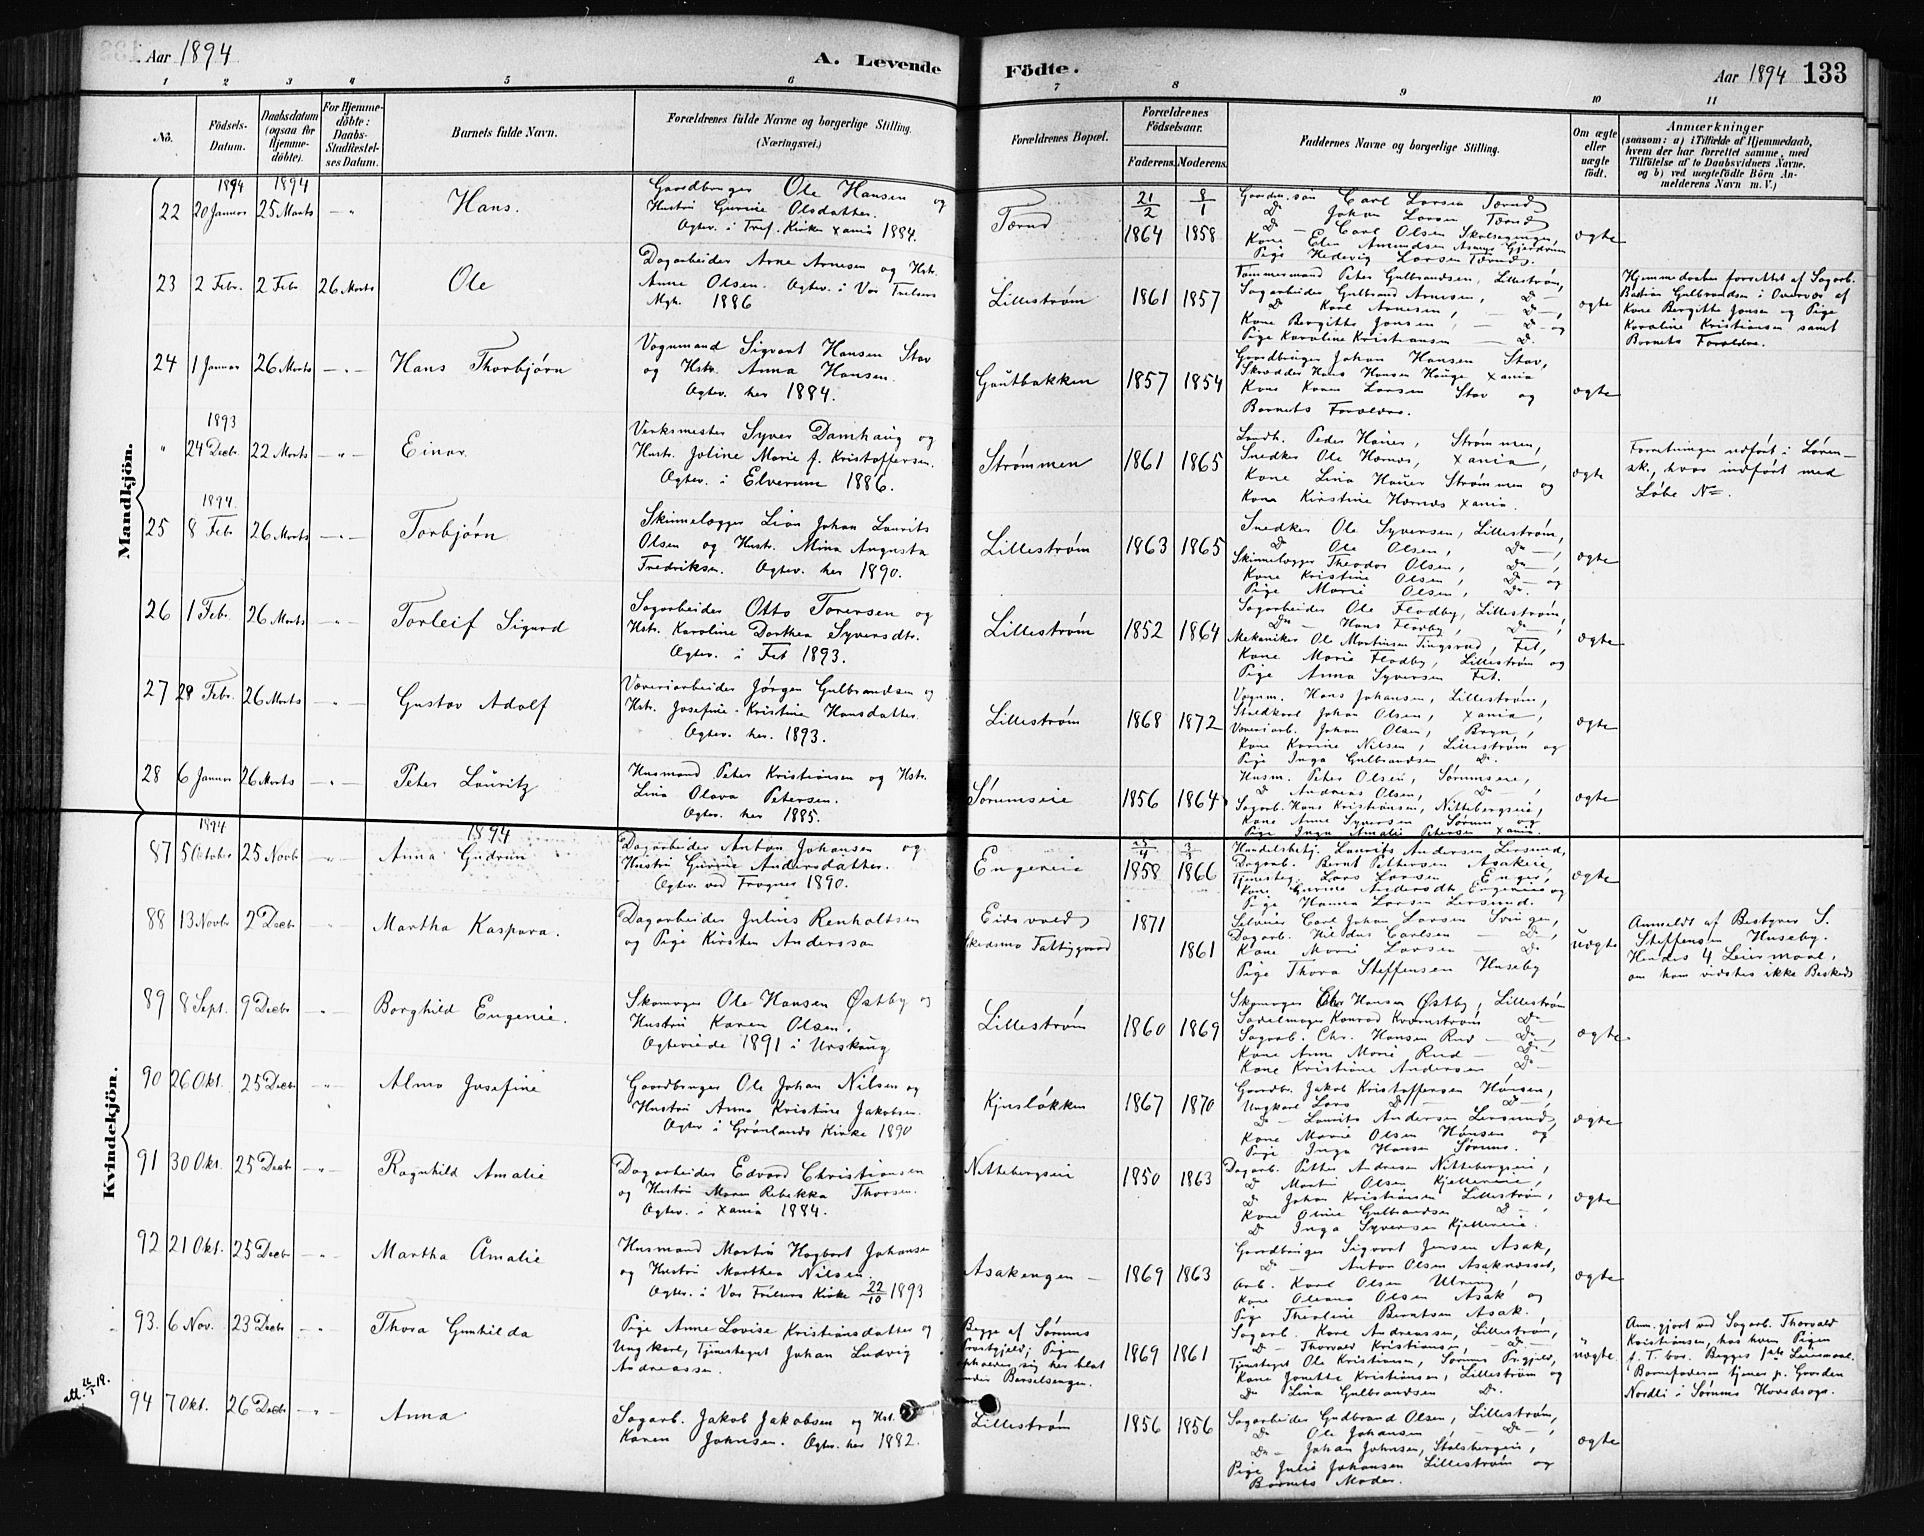 Aar 1894
A. Levende
Födte.
Aar 1894 133
1 2 3 4 5 6 7 8 9 10 11
No.
Födsels-Datum.
Daabsdatum (ogsaa for Hjemme-döbte).
For Hjemme-döbte: Daabs-Stadfæstel-ses Datum.
Barnets fulde Navn.
Forældrenes fulde Navne og borgerlige Stilling.
(Næringsvei.)
Forældrenes Bopæl.
Forældrenes Födselsaar.
Faderens. Moderens.
Faddernes Navne og borgerlige Stilling.
Om ægte eller uægte födt.
Anmærkninger
(saasom: a) i Tilfælde af Hjemmedaab,
hvem der har forrettet samme, med
Tilföielse af to Daabsvidners Navne,
og b) ved uægtefödte Börn An-
melderens Navn m. V.)
Mandkjön.
1894 1894
22 20 Januar 25 Marts
Hans.
Gaardbruger Ole Hansen og
Hustru Gurine Olsdatter.
Ægtev. i Tref. Kirke Xania 1884.
Tærud
21/2 1864
8/1 1858
Gaardm. søn Carl Larsen Tærud
D Johan Larsen Tærud
D - Carl Olsen
Pige Hedevig Larsen Tærud.
ægte
23 2 Febr. 2 Febr 26 Marts
Ole
Dagarbeider Arne Arnesen og Hstr.
Anne Olsen. Ægtev. i Vor Frelsers
Mgh. 1886
Lillestrøm
1861 1857
Tømmermand Peter Gulbrandsen, Lillestrøm,
Sagarbeider Gulbrand Arnesen, D
D Karl Arnesen, D
Kone Bergitte Jonsen, D og
Pige Karoline Kristiansen D.
ægte
Hjemmedaaben forrettet af Sagarb.
Bastian Gulbrandsen i Overvær af
Kone Bergitte Jonsen og Pige
Karoline Kristiansen samt
Barnets Forældre.
24 1 Januar 26 Marts
Hans Thorbjørn
Vognmand Sigvart Hansen Stav
og Hstr. Anna Hansen.
Ægtev. her 1884.
Gautbakken
1857 1854
Gaardbruger Johan Hansen Stav,
Skrædder Hans Hansen Hauge Xania
Kone Karen Larsen Stav og
Barnets Forældre.
ægte
1893
" 24 Decbr. 22 Marts
Einar.
Verksmester Syver Damhaug og
Hustr. Joline Marie f. Kristoffersen.
Ægtev. i Elverum 1886.
Strømmen
1861 1865
Landh. Peder Høuer, Strømmen,
Snedker Ole Hærnes, Xania,
Kone Lina Høuer Strømmen og
Kone Kirstine Hærnæs Xania.
ægte
Forretningen udført i Løren-
sk., hvor indført med
Løbe No.
1894.
25 8 Febr 26 Marts
Torbjørn
Skinnelægger Lian Johan Laurits
Olsen og Hustr. Mina Augusta
Fredriksen. Ægtev. her 1890.
Lillestrøm
1863 1865
Snedker Ole Syversen, Lillestrøm,
D Ole Olsen, D
Skinnelægger Theodor Olsen, D
Kone Kristine Olsen, D og
Pige Marie Olsen, D.
ægte
26 1 Febr. 26 Marts
Torleif Sigurd
Sagarbeider Otto Torersen og
Hstr. Karoline Dorthea Syversdtr.
Ægtev. i Fet 1893.
Lillestrøm
1852 1864
Sagarbeider Ole Flodby, Lillestrøm,
D Hans Flodby, D
Mekaniker Ole Martinsen Tingsrud, Fet,
Kone Marie Flodby, Lillestrøm og
Pige Anna Syversen Fet.
ægte
27 28 Febr. 26 Marts
Gustav Adolf
Væveriarbeider Jørgen Gulbrandsen og
Hstr. Josefine Kristine Hansdatter.
Ægtev. her. 1893.
Lillestrøm
1868 1872
Vognm. Hans Johansen, Lillestrøm,
Staldkarl Johan Olsen, Xania,
Væveriarb. Johan Olsen, Bryn,
Kone Karine Nilsen, Lillestrøm og
Pige Inga Gulbrandsen D.
ægte
28 6 Januar 26 Marts
Peter Lauritz
Husmand Peter Kristiansen og Hstr.
Lina Olava Petersen.
Ægtev. her 1885.
Sørumseie
1856 1864
Husm. Peter Olsen, Sørumseie,
D Andreas Olsen, D
Sagarb. Hans Kristiansen, Nittebergseie,
Kone Anne Syversen Sørum og
Pige Inga Amalie Petersen Xania.
ægte
Kvindekjön.
1894 1894
87 5 October 25 Novbr
Anna Gudrun
Dagarbeider Anton Johansen og
Hustru Gurine Andersdatter.
Ægtev. ved Frogner 1890.
Engereie
1858 1866
Handelsbetj. Laurits Andersen Lersund,
Dagarb. Bernt Pettersen Asakeie,
Tjenestег. Lars Larsen Enger,
Kone Gurine Andersdtr. Engereie og
Pige Hanna Larsen Lersund.
ægte
88 13 Novbr 2 Decbr
Martha Kaspara.
Dagarbeider Julius Renholdtsen
og Pige Kirsten Andersson
Eidsvold
Skedsmo Fattiggaard
1871
1861
Selveier Carl Johan Larsen Svingen,
Dagarb. Hildus Carlsen D,
Kone Marie Larsen D
Pige Thora Steffensen Huseby
uægte
Anmeldt af Bestyrer S.
Steffensen Huseby.
Hendes 4 Leiermaal,
om ham vidstes ikke Besked
89 8 Sept. 9 Decbr
Borghild Eugenie.
Skomager Ole Hansen Østby og
Hustru Karen Olsen.
Ægteviede 1891 i Urskoug
Lillestrøm
1860 1869
Skomager Chr Hansen Østby, Lillestrøm
Sadelmager Konrad Kvernstrøm D
Sagarb. Chr. Hansen Rud D,
Kone Anna Marie Rud D
Kone Kristiane Andersen D
ægte
90 26 Okt. 25 Decbr
Alma Josefine
Gaardbruger Ole Johan Nilsen og
Hustru Anna Kristine Jakobsen.
Ægtev i Grønlands Kirke 1890
Kjusløkken
1867 1870
Gaardbr. Jakob Kristoffersen Hansen,
Ungkarl Lars D D,
D Laurits Andersen Lersund,
Kone Marie Olsen Hansen og
Pige Inga Hansen Sørum.
ægte
91 30 Okt. 25 Decbr
Ragnhild Amalie
Dagarbeider Edvard Christiansen
og Hustru Maren Rebekka Thorsen.
Ægtev. i Xania 1884.
Nittebergseie
1850 1863
Dagarb. Petter Andresen Nittebergseie,
D Martin Olsen Kjellereie,
D Johan Kristiansen Lillestrøm,
Kone Oline Gulbrandsen D,
D Inga Syversen Kjellereie.
ægte
92 21 Okt. 25 Decbr
Martha Amalie
Husmand Martin Hagbart Johansen
og Hustru Marthea Nilsen.
Ægtev. i Vor Frelsers Kirke 22/10 1893
Asakengen
1869 1863
Gaardbruger Sigvart Jensen Asak,
D Anton Olsen Asaknesset,
Arb. Karl Olsen Ulrung,
Kone Oleane Olsen Asak og
Pige Thealine Berntsen Asak.
ægte
93. 6 Nov. 23 Decbr
Thora Gunhilda
Pige Anne Lovise Kristiansdatter og
Ungkarl, Tjenesteget Johan Ludvig
Andreassen.
Begge af Sørums
Præstgjeld; Pigen
opholder sig her blot
under Barselsengen.
1869 1861
Sagarb. Kare Andreassen, Lillestrøm,
D Thorvald Kristiansen, D
Tjenesteget Ole Kristiansen, Sørums Prgjeld,
Kone Jonette Kristiansen, Lillestrøm og
D Lina Gulbrandsen D.
uægte
Anm. gjort ved Sagarb. Thorvald
Kristiansen, hos hvem Pigen
f. T. bor. Begges 1ste Leiermaal.
Barnefaderen tjener p. Gaarden
Nordli i Sørums Hovedsogn.
94 7 Okt. 26 Decbr
Anna
Sagarb. Jakob Jakobsen og Hst.
Karen Johnsen. Ægtev. her 1882.
Lillestrøm
1856 1856
Sagarbeider Gudbrand Olsen, Lillestrøm,
D Ole Johansen D,
D Johan Johnsen, Stalsbergeie,
Pige Julie Johansen Lillestrøm og
Barnets Moder.
ægte